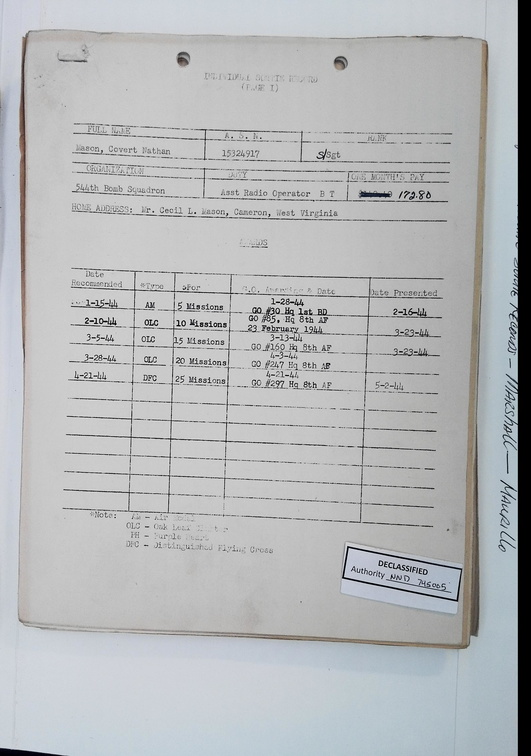 INDIVIDUAL COMBAT RECORD
(PAGE I)
FULL NAME A. S. N. RANK
Mason, Covert Nathan 15324917 S/Sgt
ORGANIZATION DUTY ONE MONTH'S PAY
544th Bomb Squadron Asst Radio Operator B T 172.80
HOME ADDRESS: Mr. Cecil L. Mason, Cameron, West Virginia
AWARDS
Date Recommended *Type *For G.O. Awarding & Date Date Presented
1-15-44 AM 5 Missions 1-28-44 GO #30 Hq 1st BD 2-16-44
2-10-44 OLC 10 Missions GO #85, Hq 8th AF 23 February 1944 3-23-44
3-5-44 OLC 15 Missions 3-13-44 GO #160 Hq 8th AF 3-23-44
3-28-44 OLC 20 Missions 4-3-44 GO #247 Hq 8th AF
4-21-44 DFC 25 Missions 4-21-44 GO #297 Hq 8th AF 5-2-44
*Note: AM - Air Medal
OLC - Oak Leaf Cluster
PH - Purple Heart
DFC - Distinguished Flying Cross
DECLASSIFIED
Authority NND 745005
Records - Marshall - Maurillo